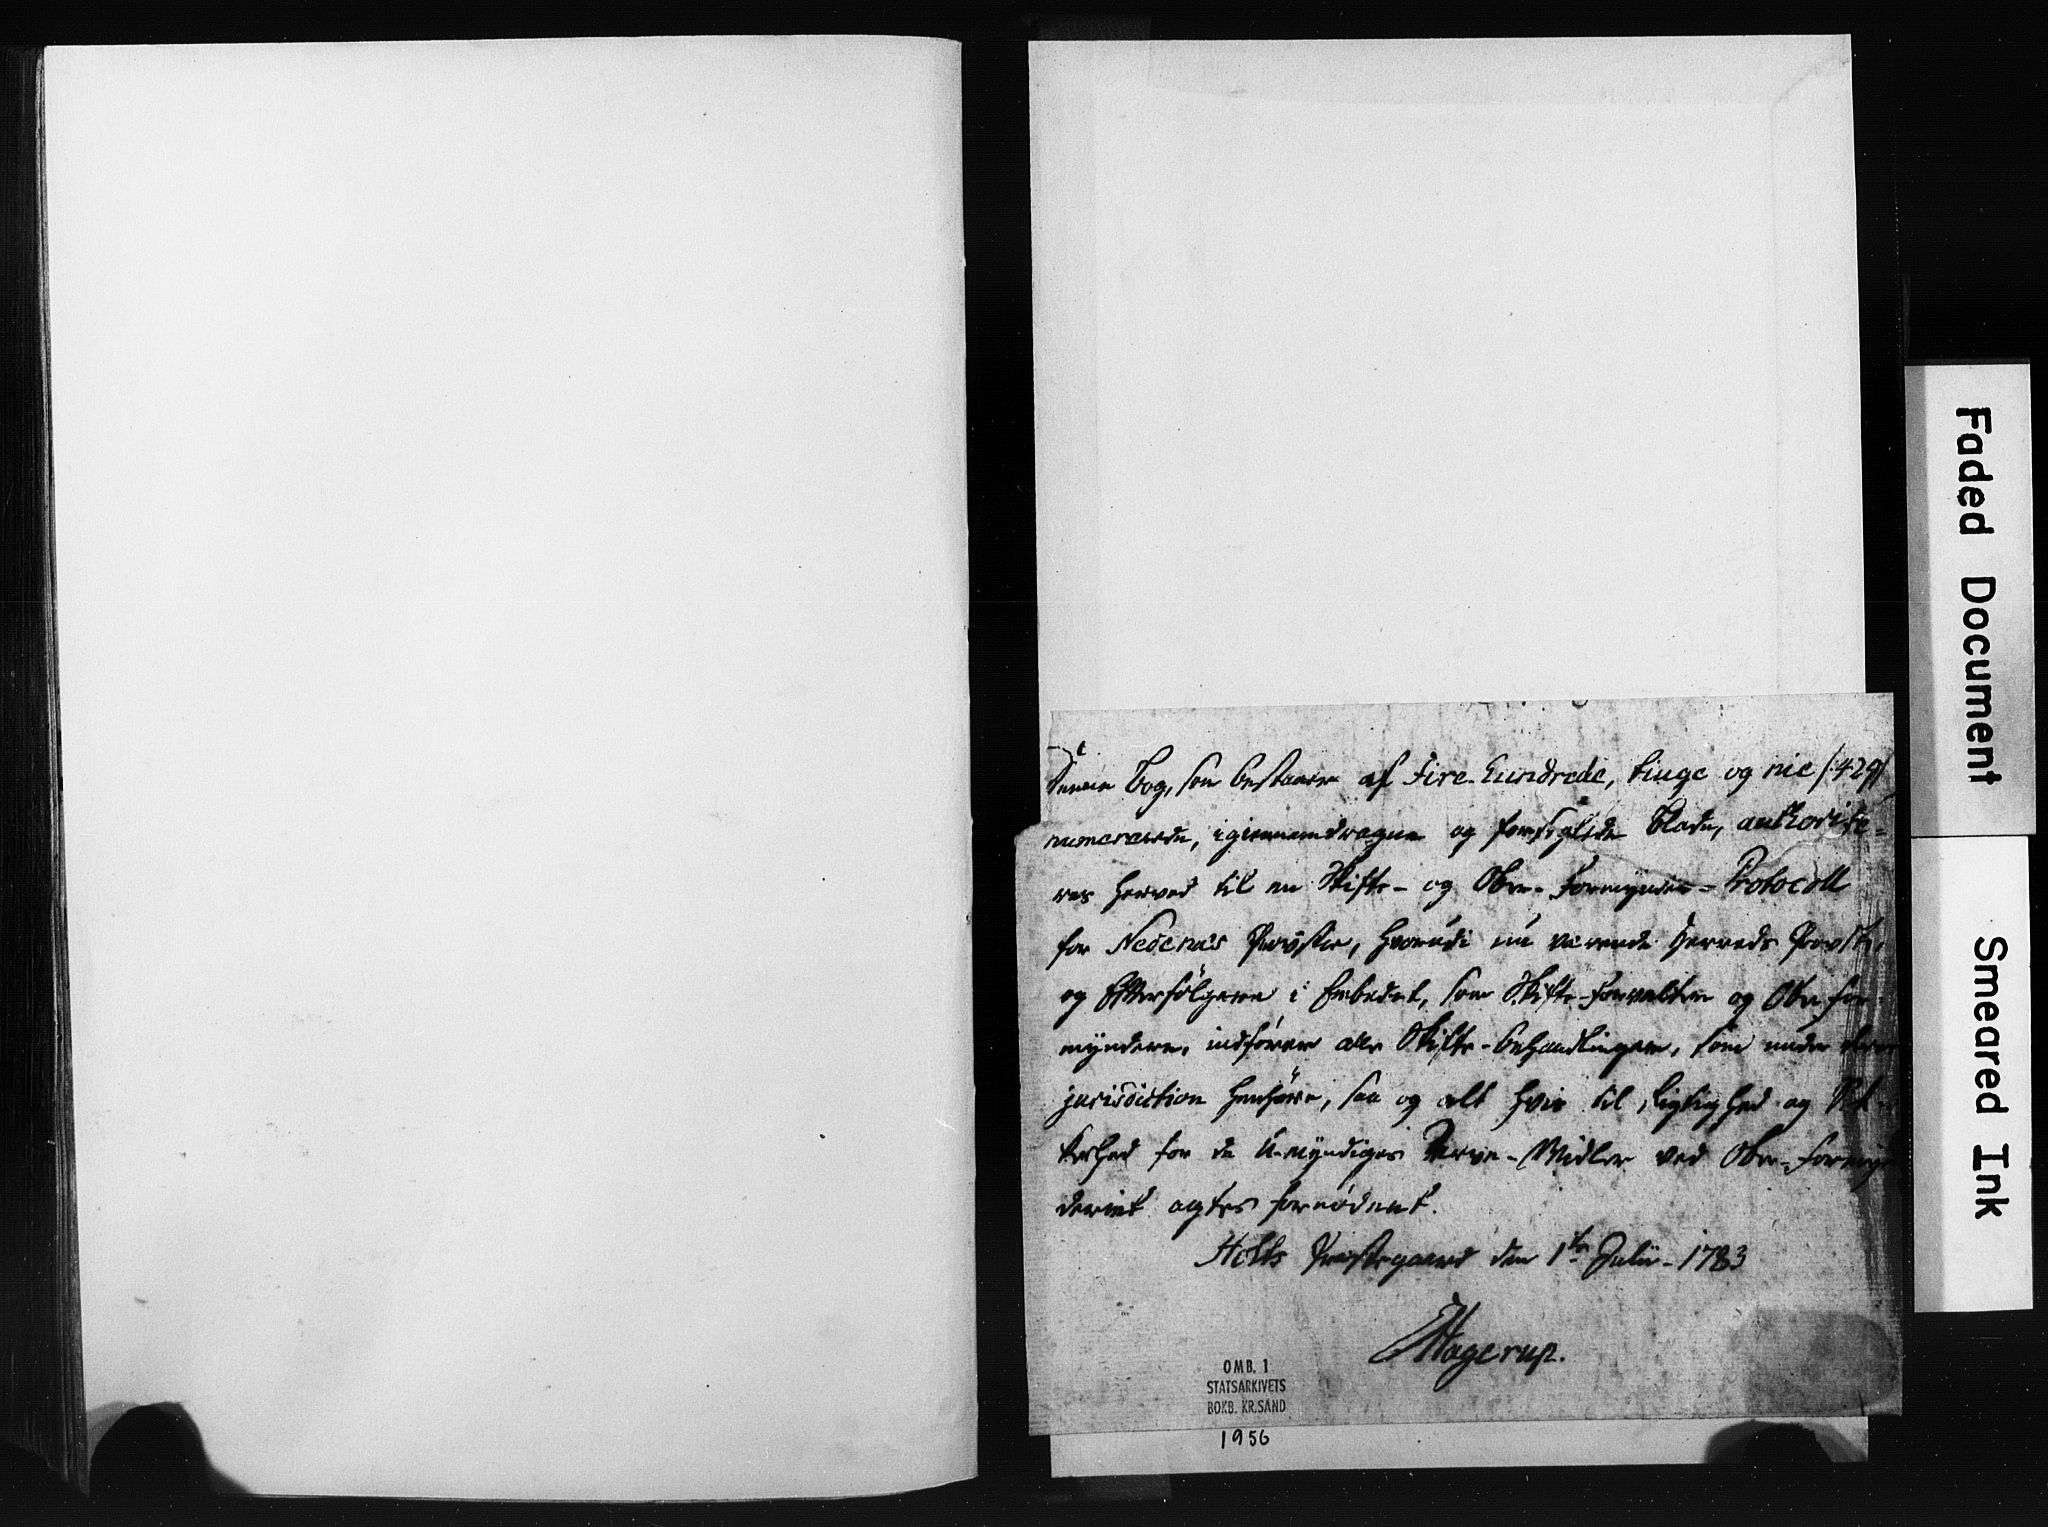 Denne Bog, som bestaaer af Fire Hundrede, tiuge og nie /:429/
numererede, igiennemdragne og forseglede Blade, authorise=
res herved til en Skifte- og Ober-Formynder-Protocoll
for Nedenæs Provstie, hvorudi nu værende Herreds Provst,
og Efterfölgere i Embedet, som Skifte-Forvaltere og Ober for-
myndere, indförer alle Skifte-behandlinger, som under deres
jurisdiction henhöre, saa og alt hvis til Rigtighed og Sik-
kerhed for de U-myndiges Arve-Midler ved Ober-Formyn
deriet agtes fornödent.
Holts Præstegaard den 1te Julii 1783
Hagerup.
OMB. 1
STATSARKIVETS
BOKB. KR.SAND
1956
Faded Document
Smeared Ink